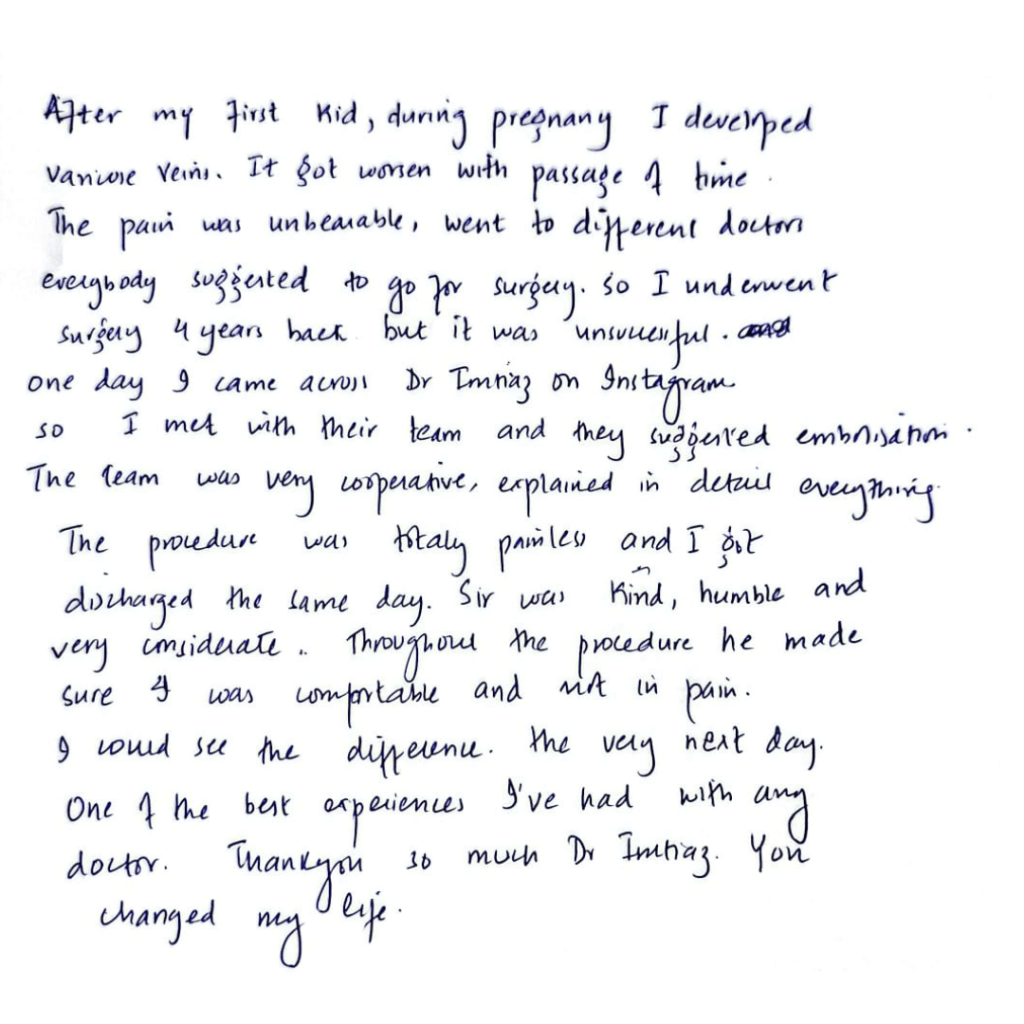 After my first kid, during pregnany I developed
varicose veins. It got worsen with passage of time.
The pain was unbearable, went to different doctors
everybody suggested to go for surgery. so I underwent
surgery 4 years back but it was unsuccessful.
one day I came across Dr Imtiaz on Instagram
so I met with their team and they suggested embolisation.
The team was very cooperative, explained in detail everything.
The procedure was totaly painless and I got
discharged the same day. Sir was kind, humble and
very considerate.. Throughout the procedure he made
sure I was comfortable and not in pain.
I could see the difference. the very next day.
One of the best experiences I've had with any
doctor. Thankyou so much Dr Imtiaz. You
changed my life.